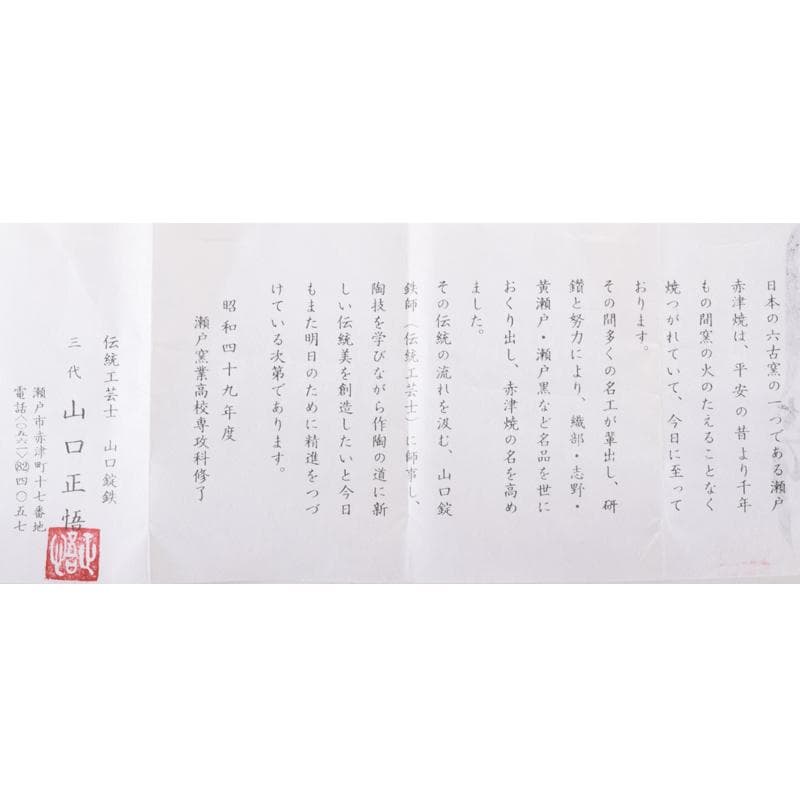 日本の六古窯の一つである瀬戸
赤津焼は、平安の昔より千年
もの間窯の火のたえることなく
焼つがれていて、今日に至って
おります。
その間多くの名工が輩出し、研
鑽と努力により、織部・志野・
黄瀬戸・瀬戸黒など名品を世に
おくり出し、赤津焼の名を高め
ました。
その伝統の流れを汲む、山口錠
鉄師（伝統工芸士）に師事し、
陶技を学びながら作陶の道に新
しい伝統美を創造したいと今日
もまた明日のために精進をつづ
けている次第であります。
昭和四十九年度
瀬戸窯業高校専攻科修了
伝統工芸士 山口錠鉄
三代 山口正悟
瀬戸市赤津町十七番地
電話〈〇五六一〉(82)四〇五七